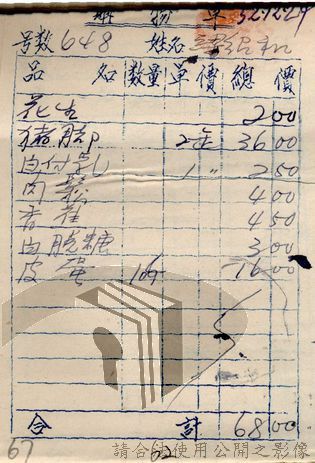 購物單 329229
号数 648 姓名
品名 数量 單價 總價
花生 200
猪脚 2年 3600
肉付 1〃 250
肉鬆 400
香菇 450
肉脆糖 300
皮蛋 1600
合計 6800
67 62
請合法使用公開之影像